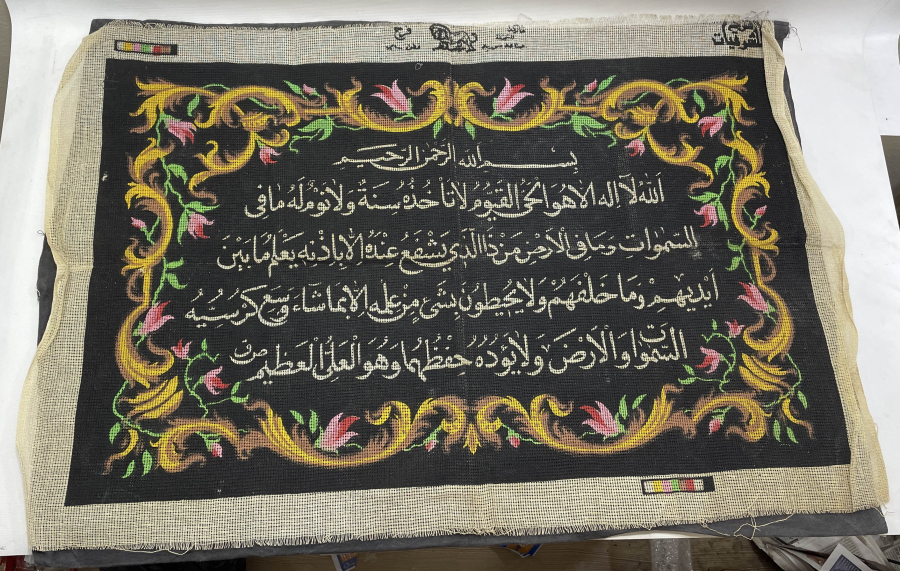 بسم الله الرحمن الرحيم
الله لا إله إلا هو الحي القيوم لا تأخذه سنة ولا نوم له ما في
السموات وما في الأرض من ذا الذي يشفع عنده إلا بإذنه يعلم ما بين
أيديهم وما خلفهم ولا يحيطون بشيء من علمه إلا بما شاء وسع كرسيه
السموات والأرض ولا يؤده حفظهما وهو العلي العظيم